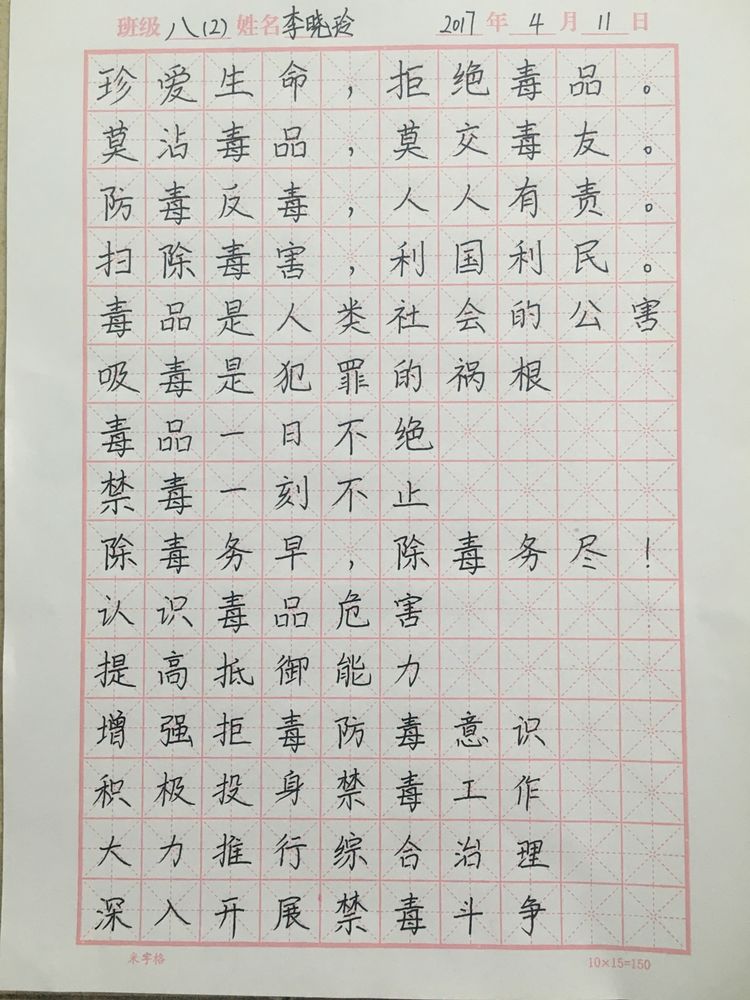 班级八(2)姓名李晓玲 2017年4月11日
珍爱生命，拒绝毒品。
莫沾毒品，莫交毒友。
防毒反毒，人人有责。
扫除毒害，利国利民。
毒品是人类社会的公害
吸毒是犯罪的祸根
毒品一日不绝
禁毒一刻不止
除毒务早，除毒务尽！
认识毒品危害
提高抵御能力
增强拒毒防毒意识
积极投身禁毒工作
大力推行综合治理
深入开展禁毒斗争
米字格 10×15=150